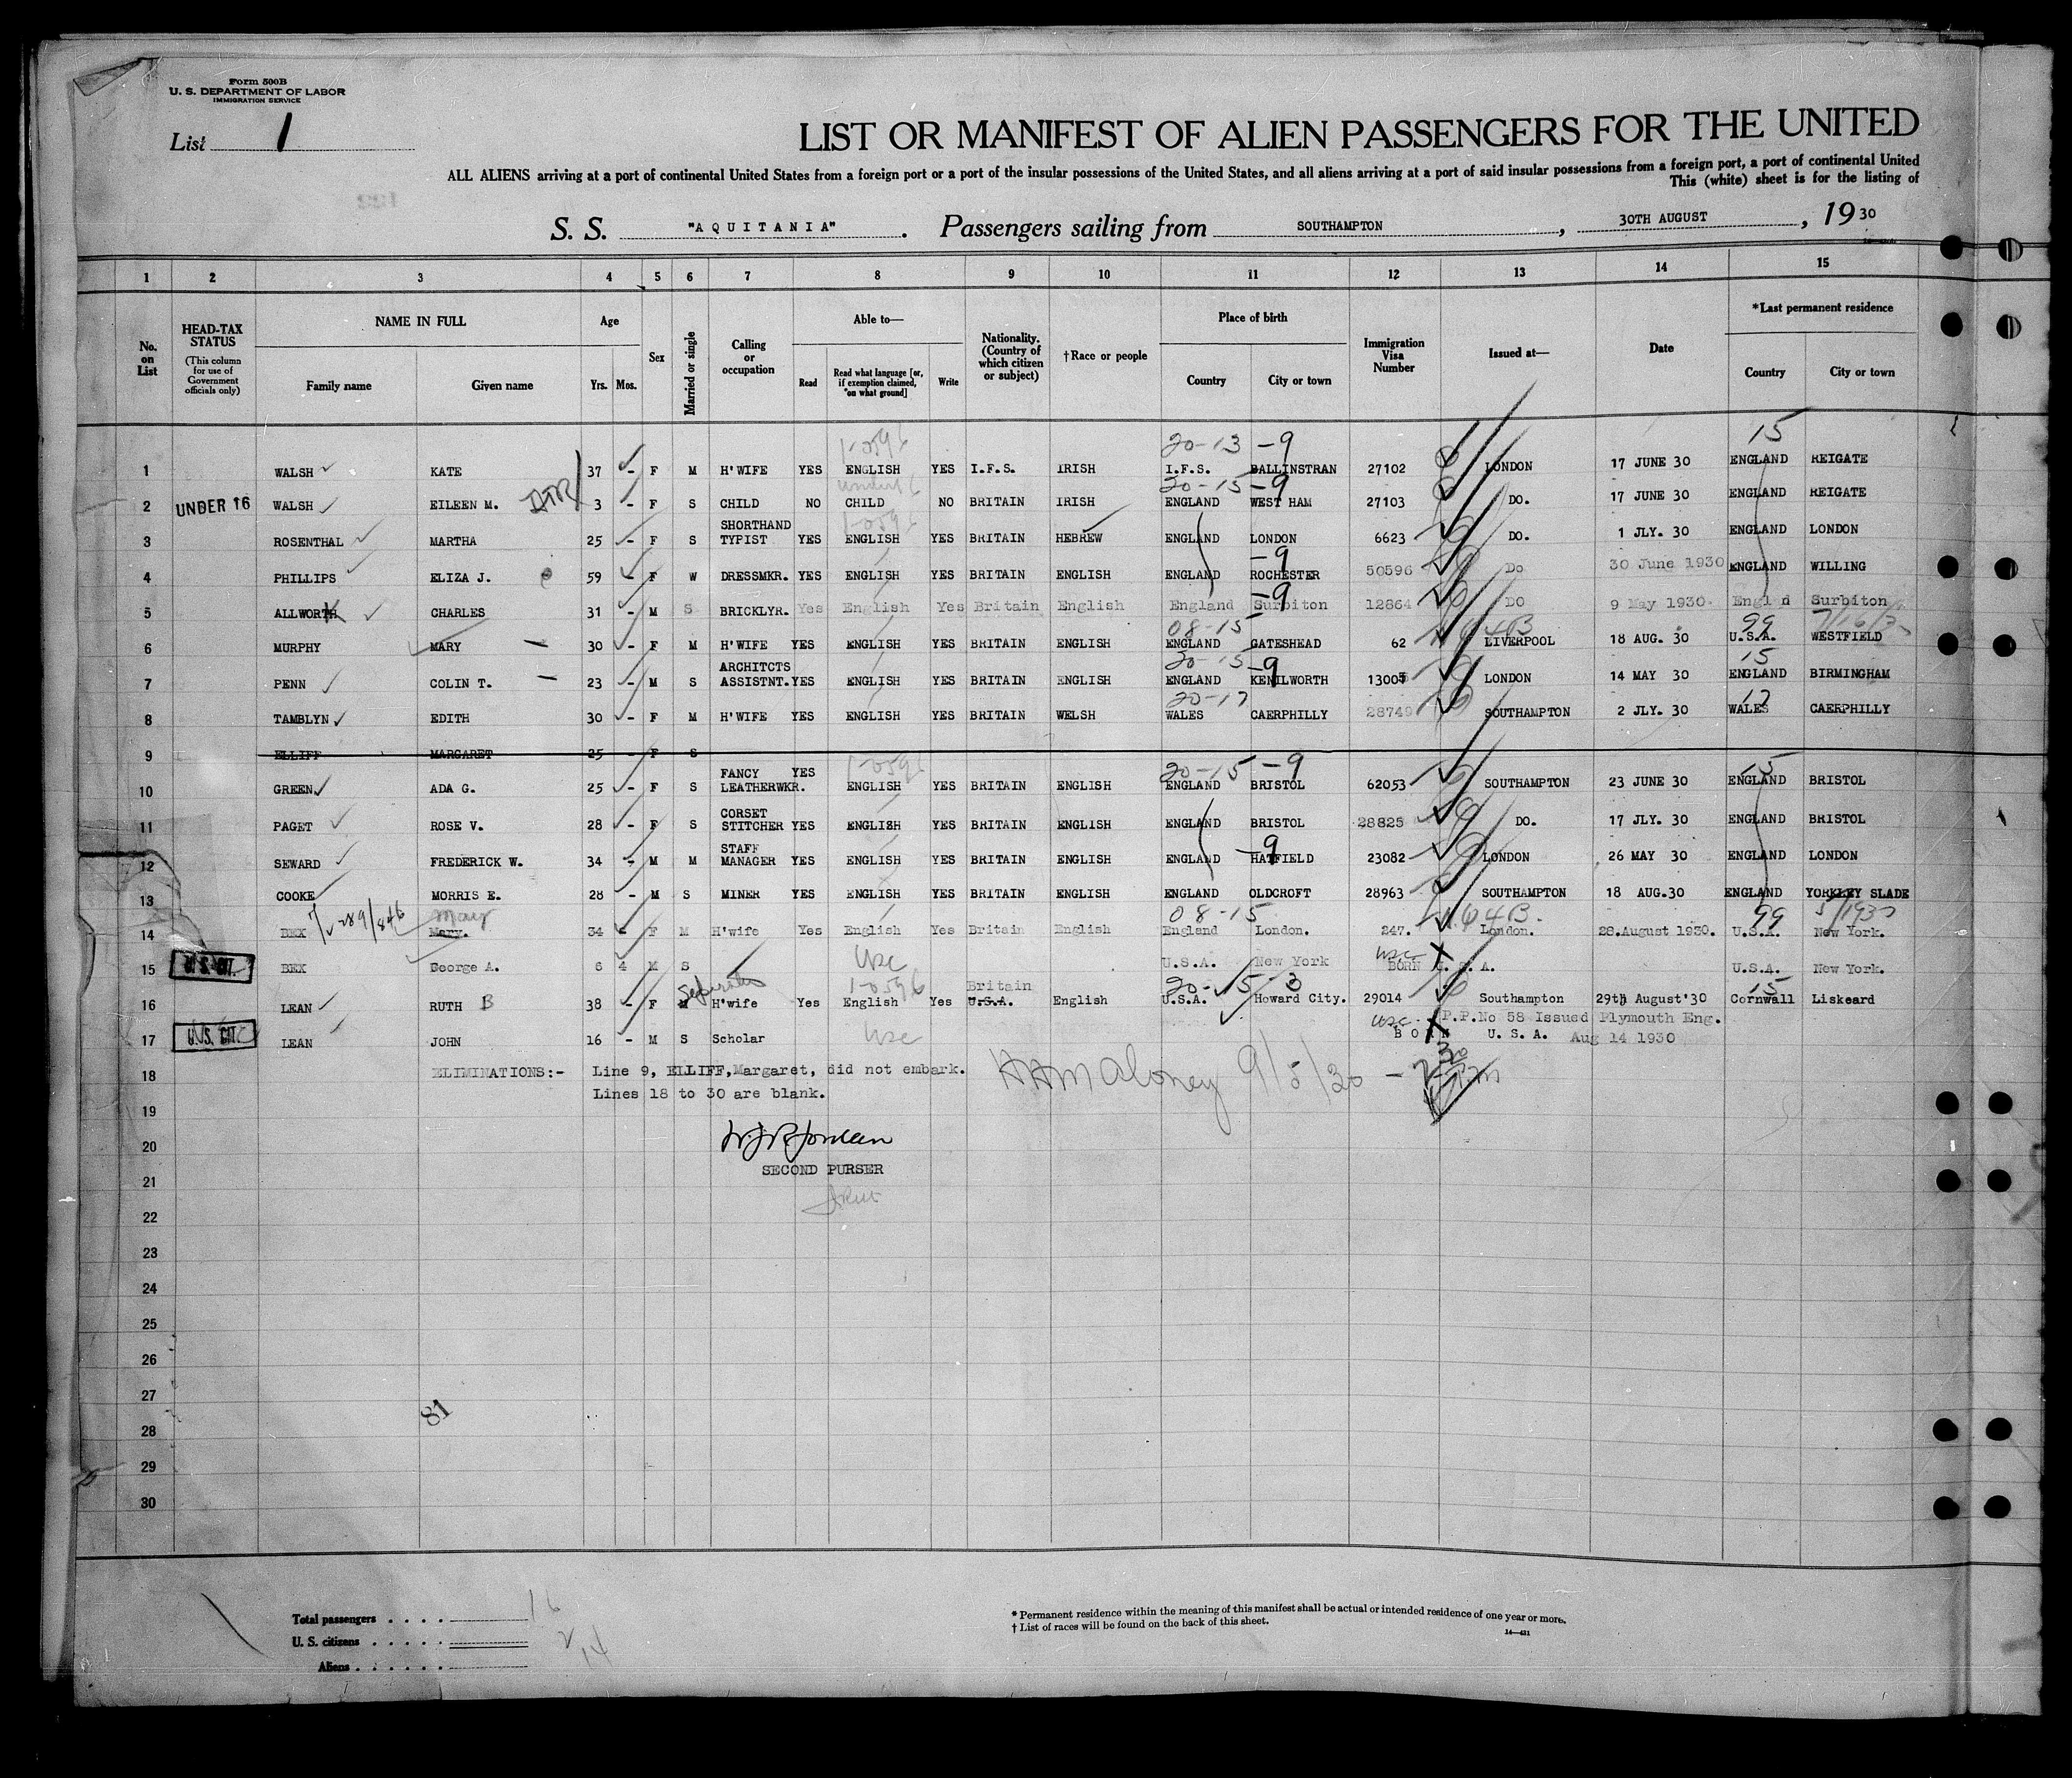 Form 500B
U. S. DEPARTMENT OF LABOR
IMMIGRATION SERVICE
List 1
LIST OR MANIFEST OF ALIEN PASSENGERS FOR THE UNITED
ALL ALIENS arriving at a port of continental United States from a foreign port or a port of the insular possessions of the United States, and all aliens arriving at a port of said insular possessions from a foreign port, a port of continental United
This (white) sheet is for the listing of
S. S. "AQUITANIA". Passengers sailing from SOUTHAMPTON, 30TH AUGUST, 19 30
1 2 3 4 5 6 7 8 9 10 11 12 13 14 15
No. on List
HEAD-TAX STATUS
(This column for use of Government officials only)
NAME IN FULL
Family name Given name
Age
Yrs. Mos.
Sex
Married or single
Calling or occupation
Able to—
Read
Read what language [or, if exemption claimed, on what ground]
Write
Nationality. (Country of which citizen or subject)
†Race or people
Place of birth
Country City or town
Immigration Visa Number
Issued at—
Date
*Last permanent residence
Country City or town
1-0596 20-13 -9 15
1 WALSH KATE 37 - F M H'WIFE YES ENGLISH YES I.F.S. IRISH I.F.S. BALLINSTRAN 27102 LONDON 17 JUNE 30 ENGLAND REIGATE
under 16 20-15 -9
2 UNDER 16 WALSH EILEEN M. 3 - F S CHILD NO CHILD NO BRITAIN IRISH ENGLAND WEST HAM 27103 DO. 17 JUNE 30 ENGLAND REIGATE
1-0596
3 ROSENTHAL MARTHA 25 - F S SHORTHAND TYPIST YES ENGLISH YES BRITAIN HEBREW ENGLAND LONDON 6623 DO. 1 JLY. 30 ENGLAND LONDON
-9
4 PHILLIPS ELIZA J. 59 - F W DRESSMKR. YES ENGLISH YES BRITAIN ENGLISH ENGLAND ROCHESTER 50596 Do 30 June 1930 ENGLAND WILLING
-9
5 ALLWORTH CHARLES 31 - M S BRICKLYR. Yes English Yes Britain English England Surbiton 12864 DO 9 May 1930. Engl d Surbiton
08-15 64B 99
6 MURPHY MARY 30 - F M H'WIFE YES ENGLISH YES BRITAIN ENGLISH ENGLAND GATESHEAD 62 LIVERPOOL 18 AUG. 30 U.S.A. WESTFIELD
20-15 -9 15
7 PENN COLIN T. 23 - M S ARCHITCTS ASSISTNT. YES ENGLISH YES BRITAIN ENGLISH ENGLAND KENILWORTH 13005 LONDON 14 MAY 30 ENGLAND BIRMINGHAM
20-17 17
8 TAMBLYN EDITH 30 - F M H'WIFE YES ENGLISH YES BRITAIN WELSH WALES CAERPHILLY 28749 SOUTHAMPTON 2 JLY. 30 WALES CAERPHILLY
9 ELLIFF MARGARET 25 - F S
1-0596 20-15 -9 15
10 GREEN ADA G. 25 - F S FANCY LEATHERWKR. YES ENGLISH YES BRITAIN ENGLISH ENGLAND BRISTOL 62053 SOUTHAMPTON 23 JUNE 30 ENGLAND BRISTOL
11 PAGET ROSE V. 28 - F S CORSET STITCHER YES ENGLISH YES BRITAIN ENGLISH ENGLAND BRISTOL 28825 DO. 17 JLY. 30 ENGLAND BRISTOL
-9
12 SEWARD FREDERICK W. 34 - M M STAFF MANAGER YES ENGLISH YES BRITAIN ENGLISH ENGLAND HATFIELD 23082 LONDON 26 MAY 30 ENGLAND LONDON
13 COOKE MORRIS E. 28 - M S MINER YES ENGLISH YES BRITAIN ENGLISH ENGLAND OLDCROFT 28963 SOUTHAMPTON 18 AUG.30 ENGLAND YORKLEY SLADE
May 08-15 64B. 99
14 BEX Mary. 34 - F M H'wife Yes English Yes Britain English England London. 247. London. 28.August 1930. U.S.A. New York.
15 U.S. CIT. BEX George A. 6 4 M S USC U.S.A. New York USC BORN U.S.A. U.S.A. New York.
Separated 1-0596 Britain 20-15 3 15
16 LEAN RUTH B 38 - F M H'wife Yes English Yes U.S.A. English U.S.A. Howard City. 29014 Southampton 29th August'30 Cornwall Liskeard
USC P.P.No 58 Issued Plymouth Eng.
17 U.S. CIT LEAN JOHN 16 - M S Scholar USC BORN U. S. A. Aug 14 1930
18 ELIMINATIONS:- Line 9, ELLIFF, Margaret, did not embark.
Lines 18 to 30 are blank.
Maloney 9/5/30
19
20
SECOND PURSER
21
22
23
24
25
26
27
81
28
29
30
Total passengers . . . . 16
U. S. citizens . . . . . 2
Aliens . . . . . . 14
* Permanent residence within the meaning of this manifest shall be actual or intended residence of one year or more.
† List of races will be found on the back of this sheet.
14—431